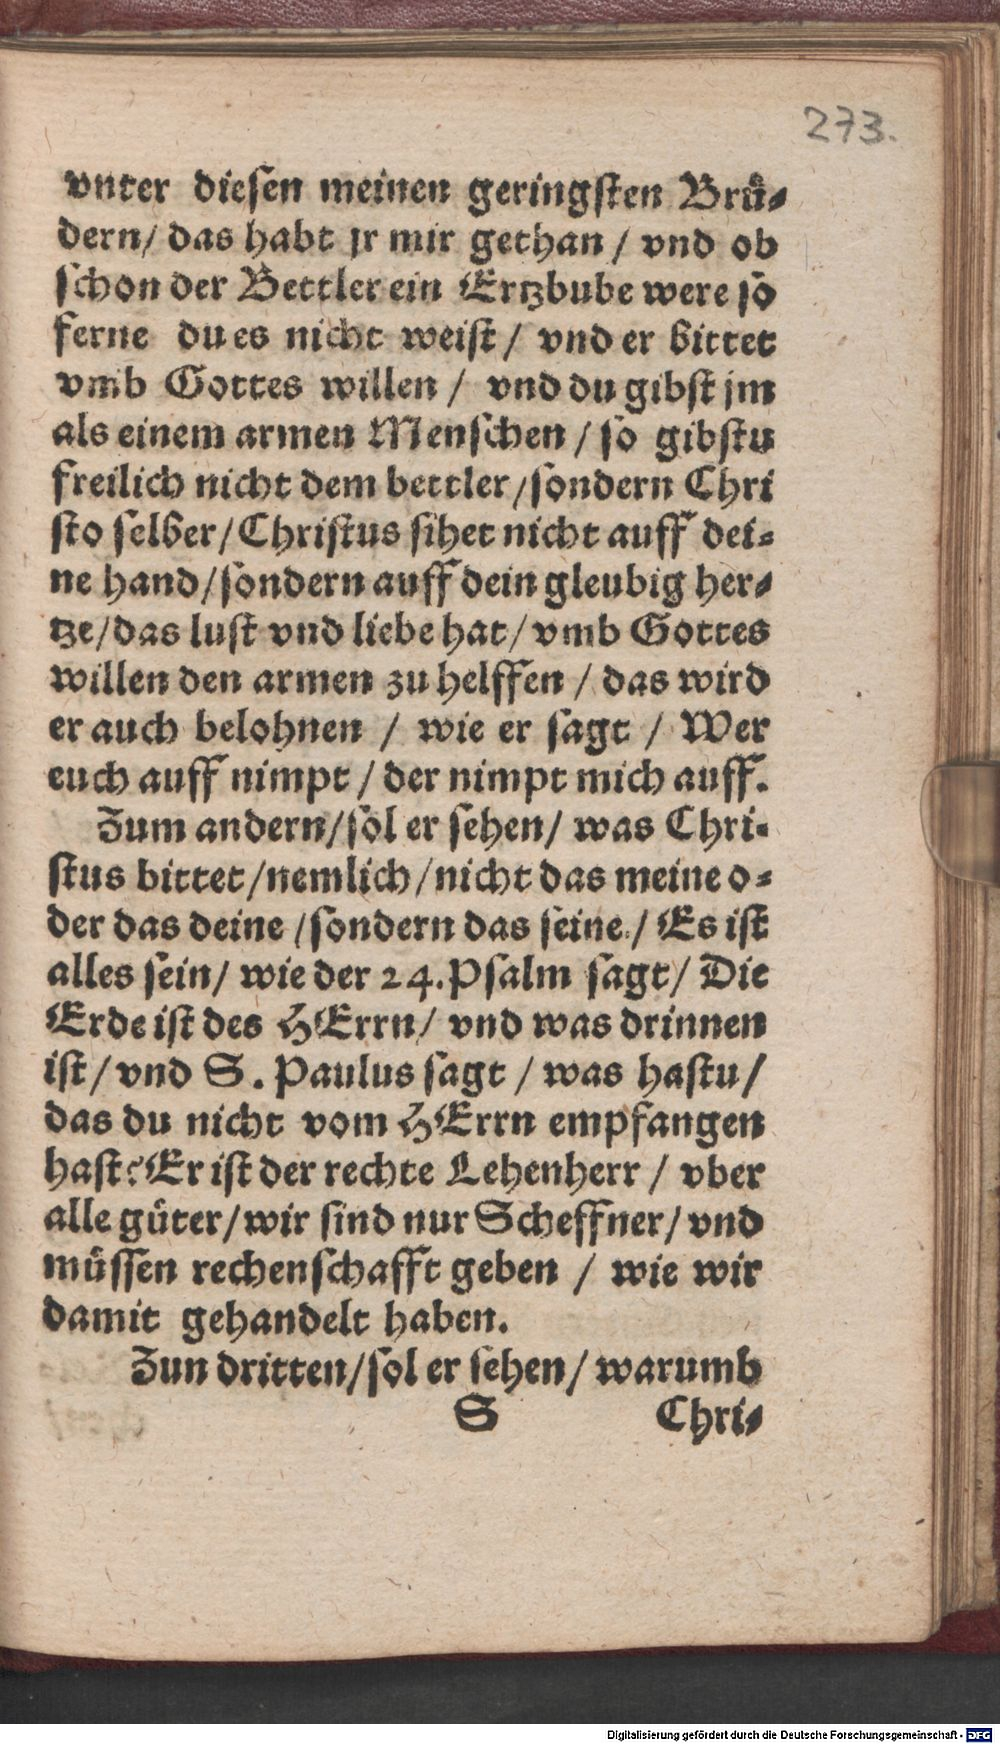 273.
vnter diesen meinen geringsten Bruͤ-
dern/ das habt jr mir gethan / vnd ob
schon der Bettler ein Ertzbube were so
ferne du es nicht weist / vnd er bittet
vmb Gottes willen / vnd du gibst jm
als einem armen Menschen / so gibstu
freilich nicht dem bettler /sondern Chri
sto selber/ Christus sihet nicht auff dei-
ne hand /sondern auff dein gleubig her-
tze/das lust vnd liebe hat/ vmb Gottes
willen den armen zu helffen / das wird
er auch belohnen / wie er sagt / Wer
euch auff nimpt / der nimpt mich auff.
Zum andern/sol er sehen/ was Chri-
stus bittet /nemlich /nicht das meine o-
der das deine /sondern das seine / Es ist
alles sein/ wie der 24.Psalm sagt/ Die
Erde ist des HErrn/ vnd was drinnen
ist / vnd S. Paulus sagt / was hastu /
das du nicht vom HErrn empfangen
hast? Er ist der rechte Lehenherr / vber
alle guͤter/ wir sind nur Scheffner/ vnd
muͤssen rechenschafft geben / wie wir
damit gehandelt haben.
Zun dritten/sol er sehen/ warumb
S Chri-
Digitalisierung gefördert durch die Deutsche Forschungsgemeinschaft - DFG